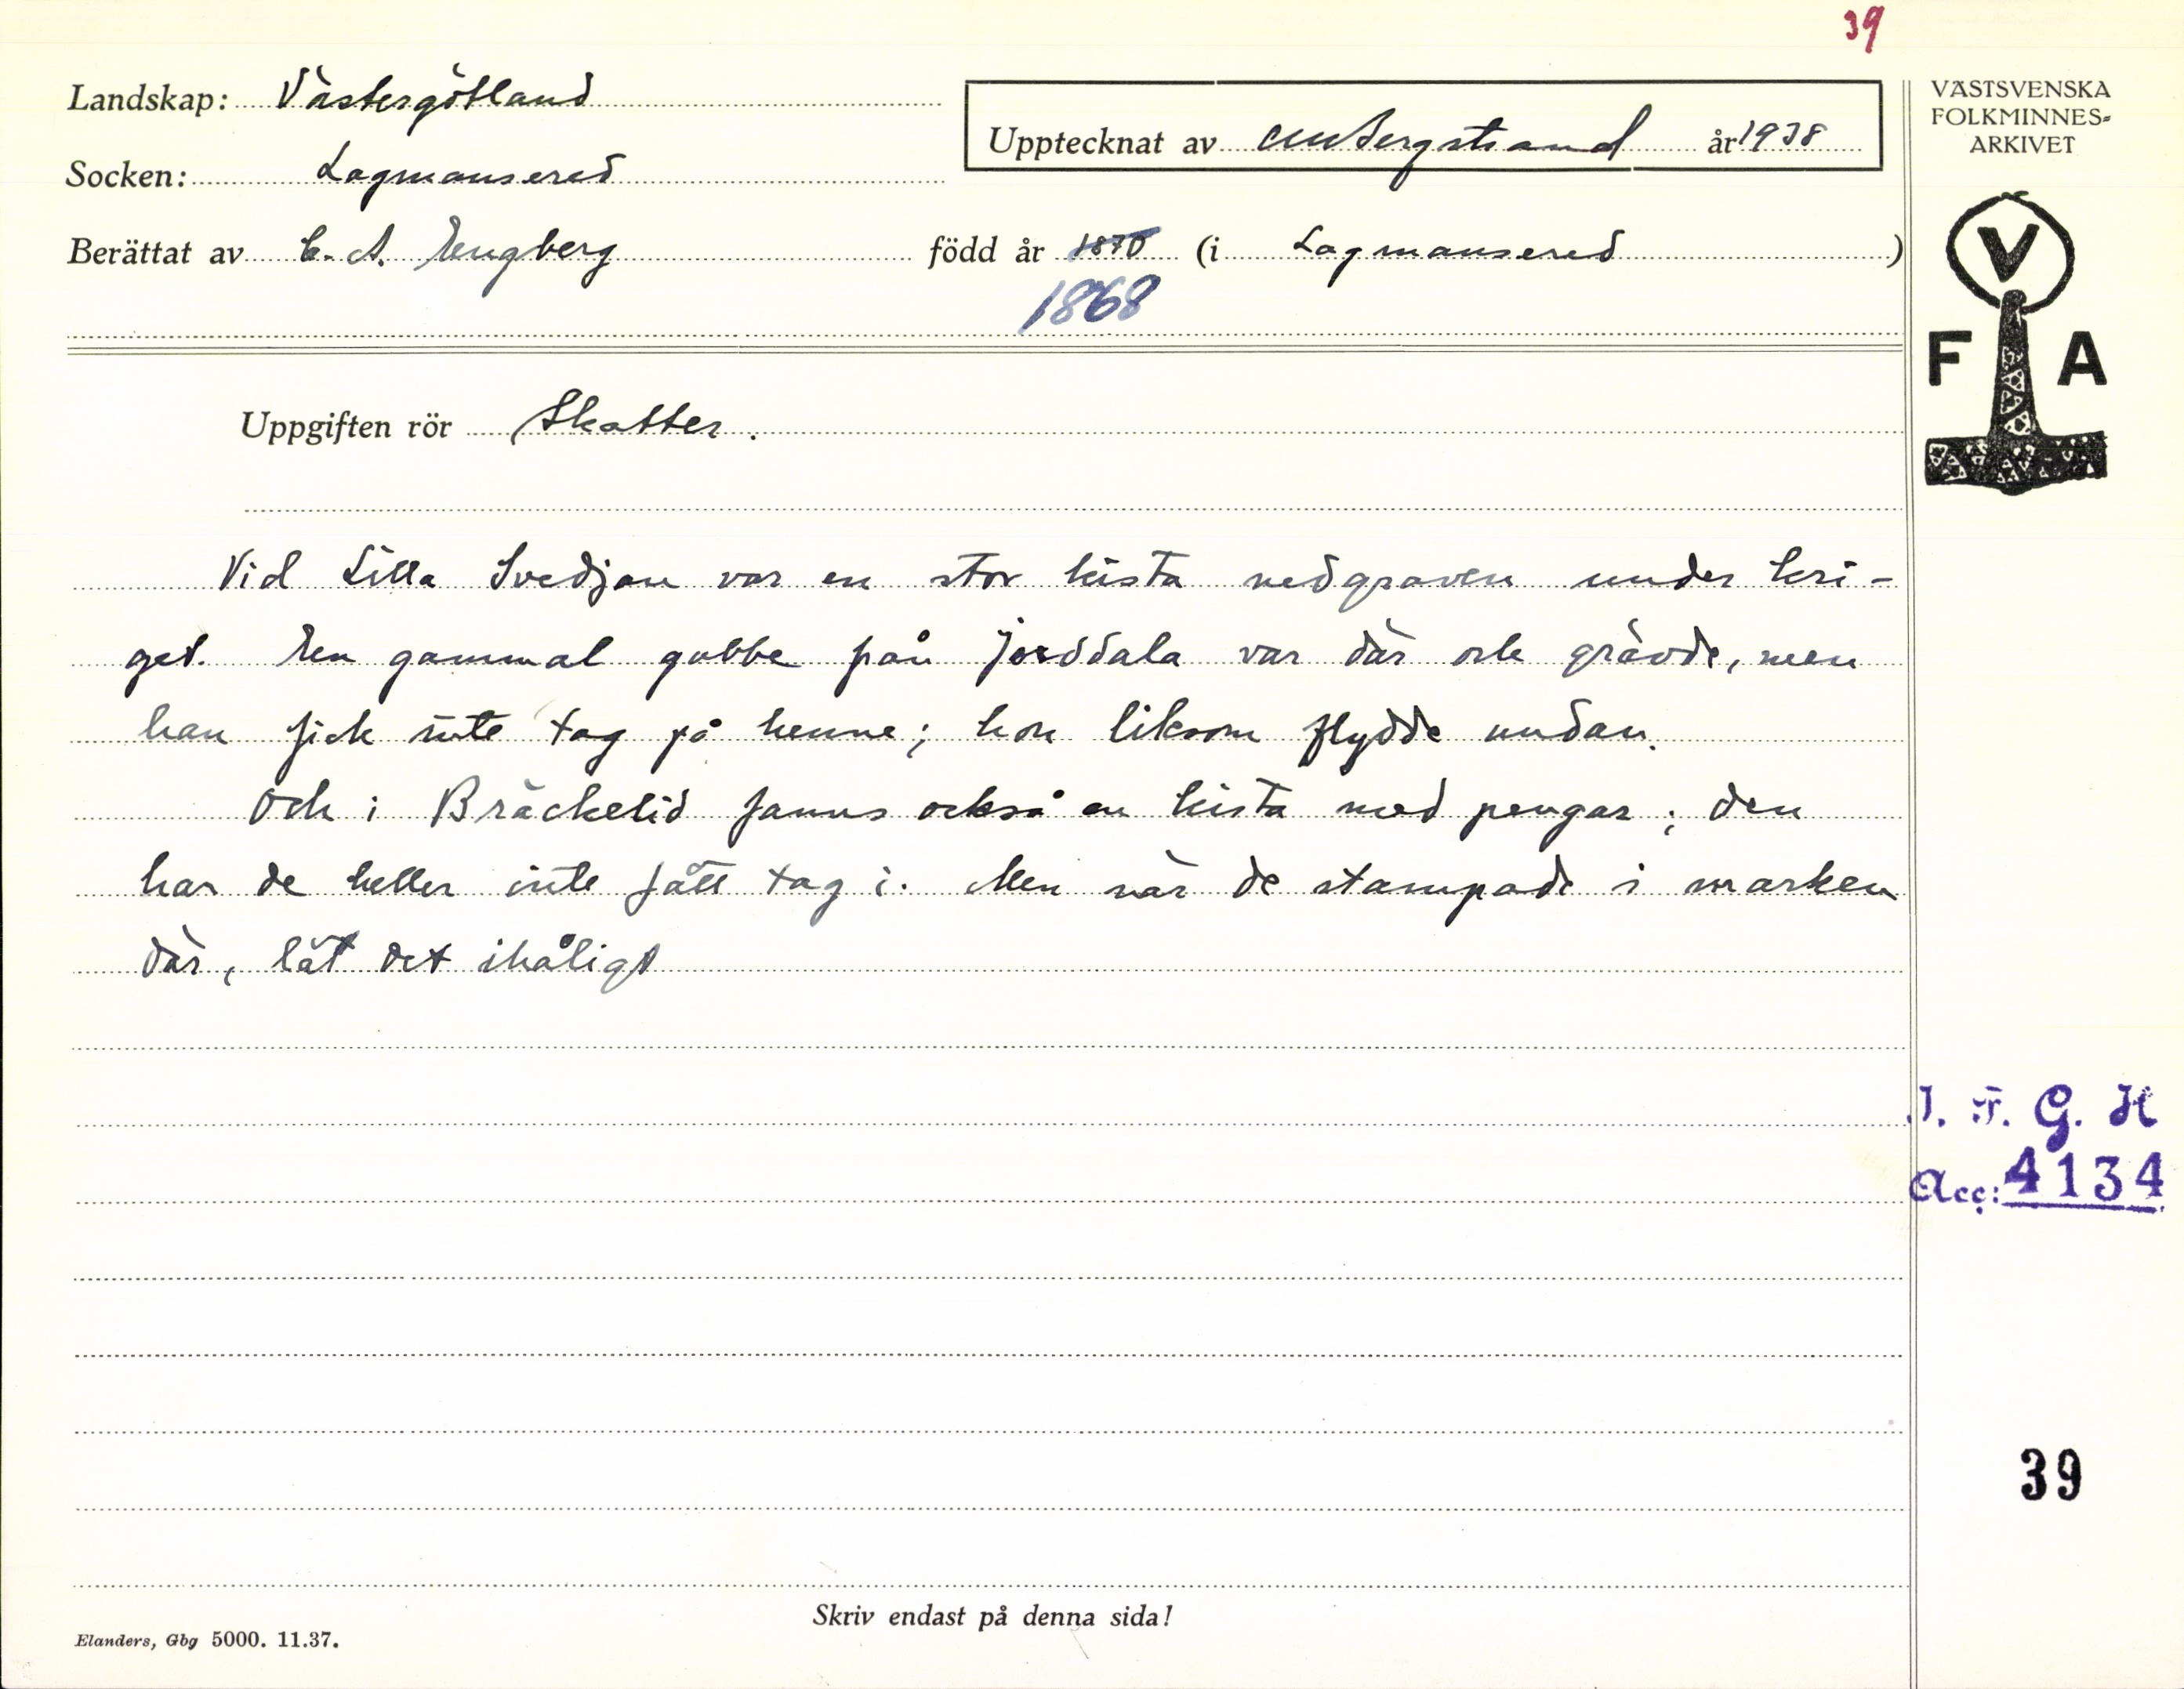 39
Landskap: Västergötland
Upptecknat av CMBergstrand år 1938
Socken: Lagmansered
Berättat av C. A. Engberg född år 1870 (i Lagmansered)
1868
VÄSTSVENSKA
FOLKMINNES-
ARKIVET
V
F A
Uppgiften rör Skatter.
Vid Lilla Svedjan var en stor kista nedgraven under kri-
get. En gammal gubbe från Jorddala var där och grävde, men
han fick inte tag på henne; hon liksom flydde undan.
Och i Bräckelid fanns också en kista med pengar; den
har de heller inte fått tag i. Men när de stampade i marken
där, lät det ihåligt
I. F. G. H
Acc: 4134
39
Skriv endast på denna sida!
Elanders, Gbg 5000. 11.37.